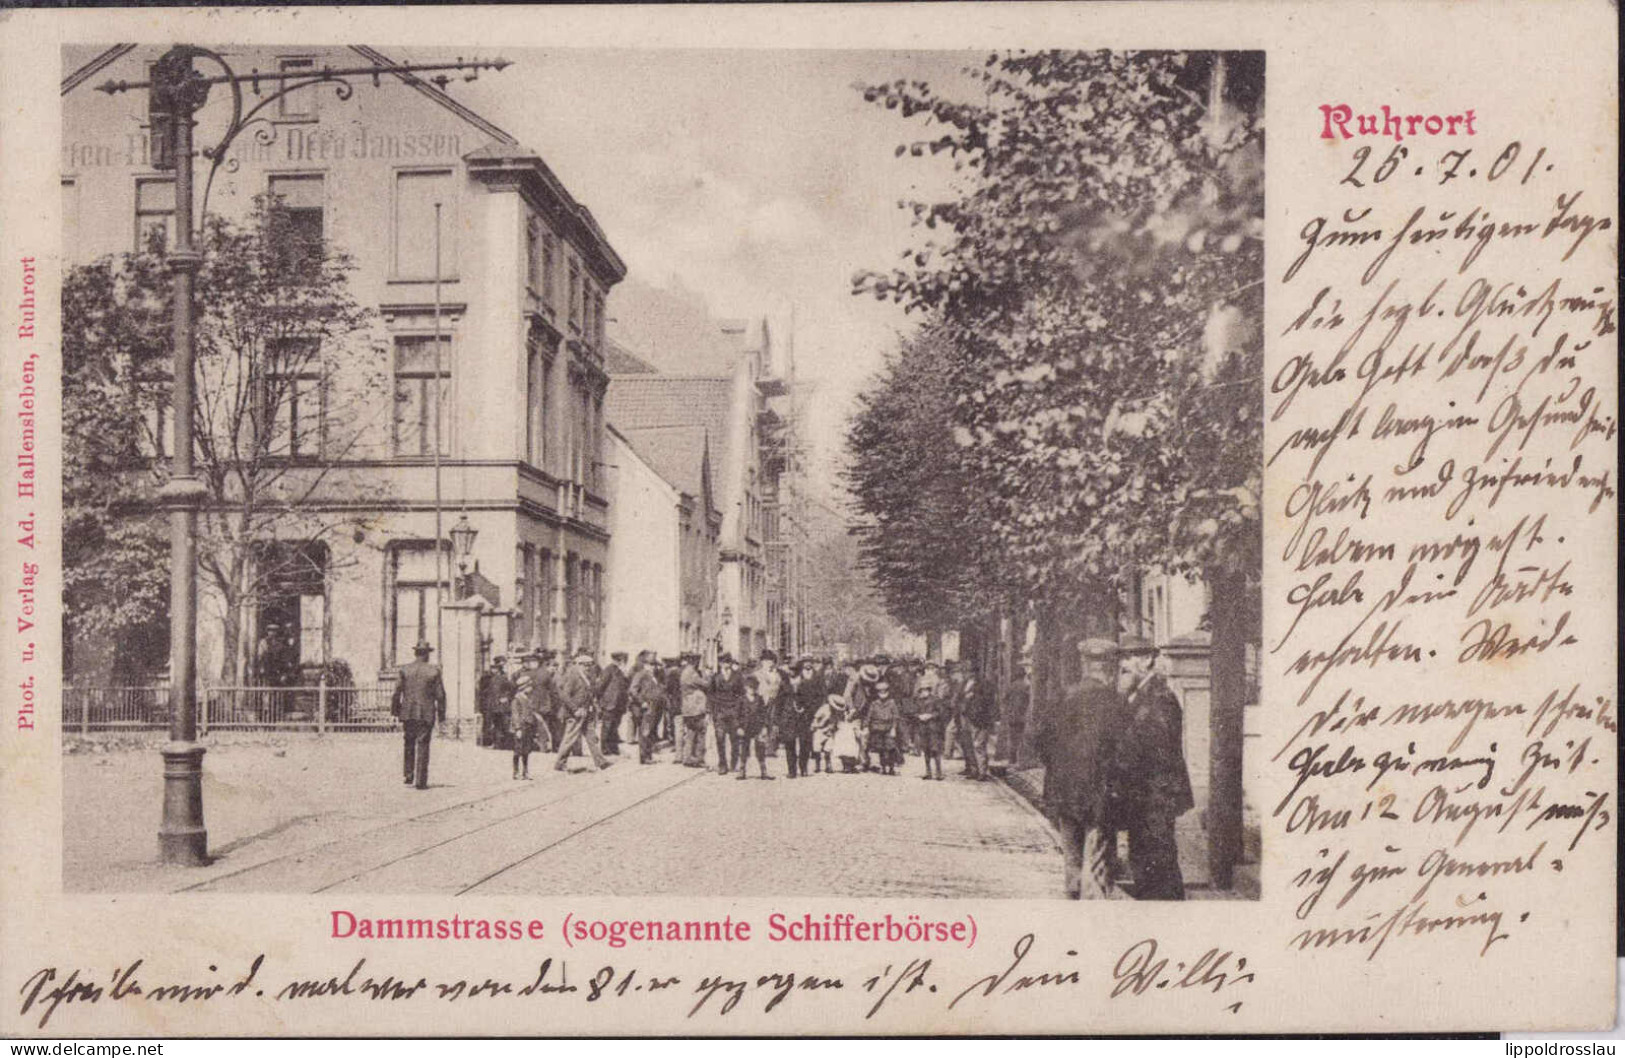 Ruhrort
26.7.01.
Zum heutigen Tage
die hrzl. Glückwünsche
Gebe Gott daß Du
recht lang in Gesundheit
Glück und Zufriedenheit
leben mögest.
Habe Dein Karte
erhalten. Werde
Dir morgen schreiben
Habe zu wenig Zeit.
Am 12 August muß
ich zur General=
musterung.
...ten-H... Otto Janssen
Phot. u. Verlag Ad. Hallensleben, Ruhrort
Dammstrasse (sogenannte Schifferbörse)
Schreibe mir d. mal wer von den 81.er gezogen ist. Dein Willi
www.delcampe.net
lippoldrosslau